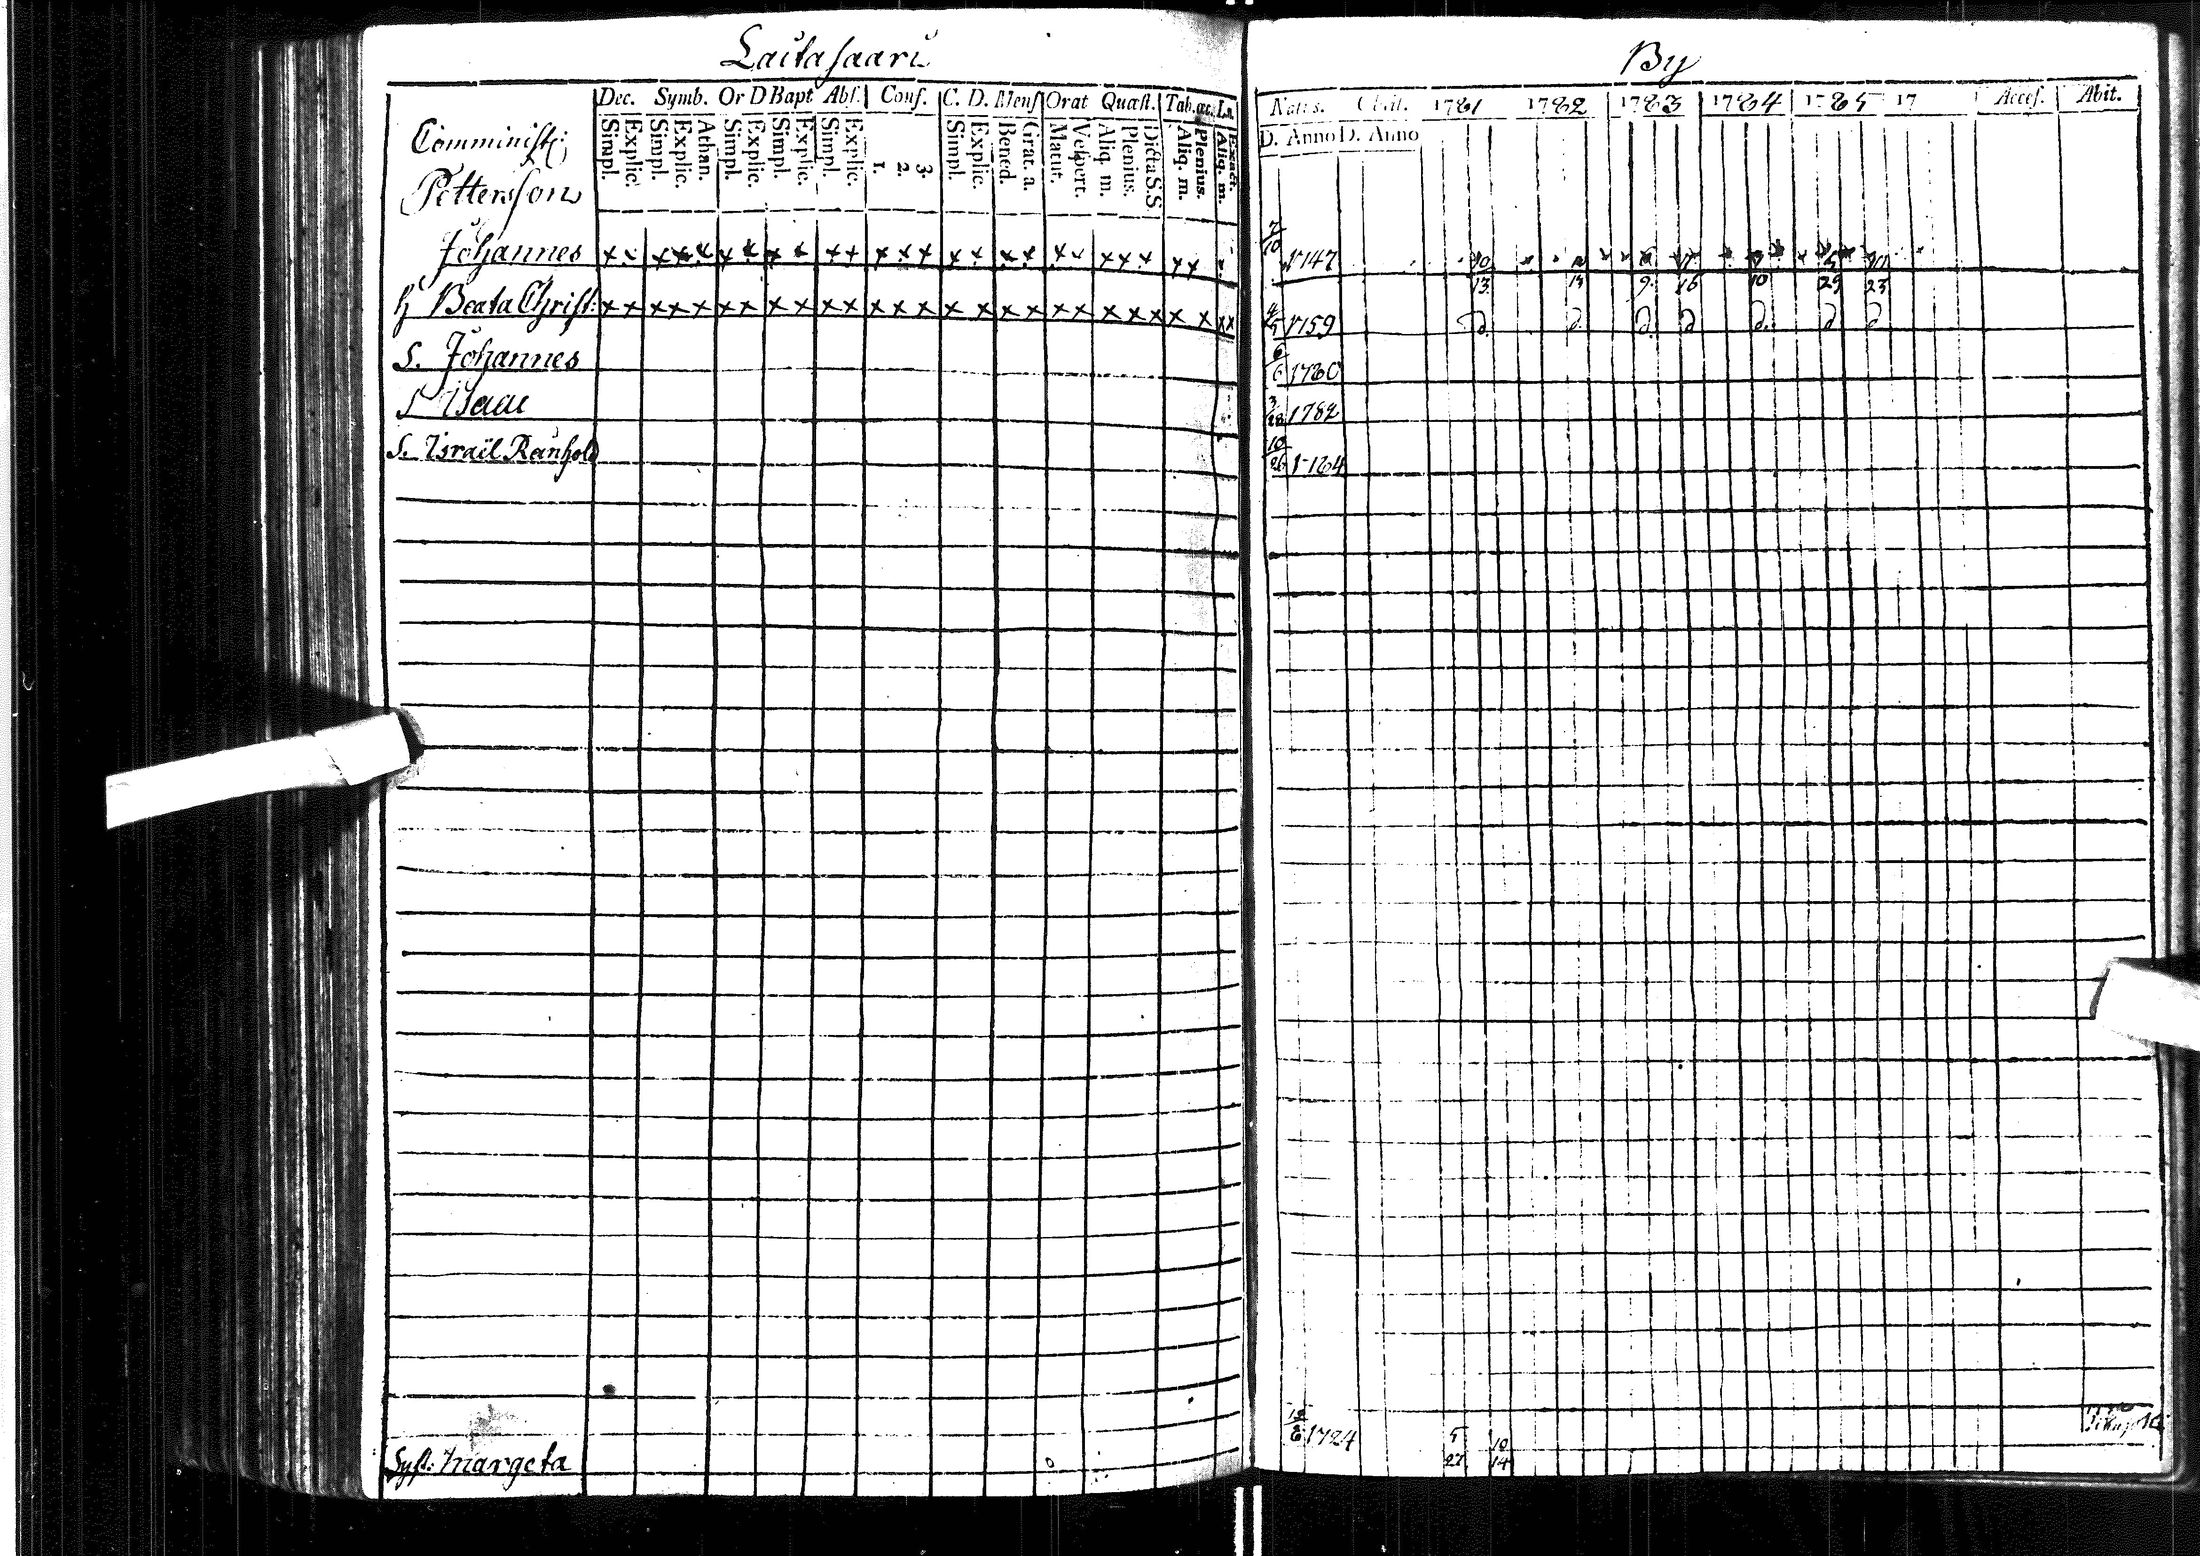 Laitasaari
Dec. Symb. Or D Bapt Abs. Conf. C. D. Mens Orat Quæst. Tab. œc. La.
Simpl. Explic. Simpl. Explic. Athan. Simpl. Explic. Simpl. Explic. Simpl. Explic. 1. 2. 3 Simpl. Explic. Bened. Grat. a. Matut. Vespert. Aliq. m. Plenius. Dicta S.S. Aliq. m. Plenius. Aliq. m. Exact.
Comminist:
Pettersson
Johannes
h Beata Christ:
S. Johannes
S Isaac
S. Israël Reinhold
Syst: Margeta
By
Natus. 1781 1782 1783 1784 1785 17 Acces. Abit.
D. Anno D. Anno
7/10 1747 10/13 9 16 10 5/29 11/23
4/5 1759 d. d. d. d d. d d
6/6 1780
3/28 1782
10/26 1784
1724 5/27 10/14